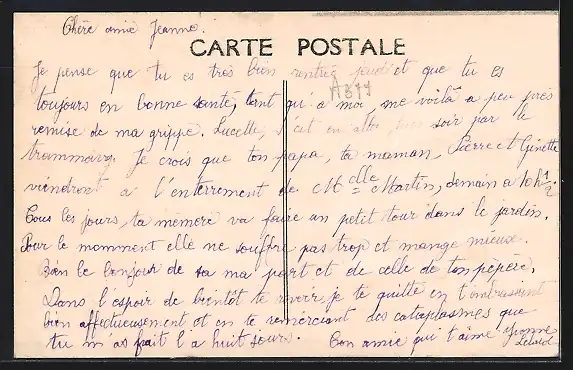 Chère amie Jeanne.
CARTE POSTALE
Je pense que tu es très bien rentrée jeudi et que tu es
A377
toujours en bonne santé, tant qu'a moi, me voilà a peu près
remise de ma grippe. Lucette, s'est en allée, hier soir par le
trammway. Je crois que ton papa, ta maman, Pierre et Ginette
viendront a l'enterrement de Mlle Martin, demain a 10h 1/2
Tous les jours, ta mémère va faire un petit tour dans le jardin.
Pour le momment elle ne souffre pas trop et mange mieux.
Bien le bonjour de sa ma part et de celle de ton pépère.
Dans l'espoir de bientôt te revoir je te quitte en t'embrassant
bien affectueusement et en te remerciant des cataplasmes que
tu m'as fait l'a huit jours. Ton amie qui t'aime Yvonne